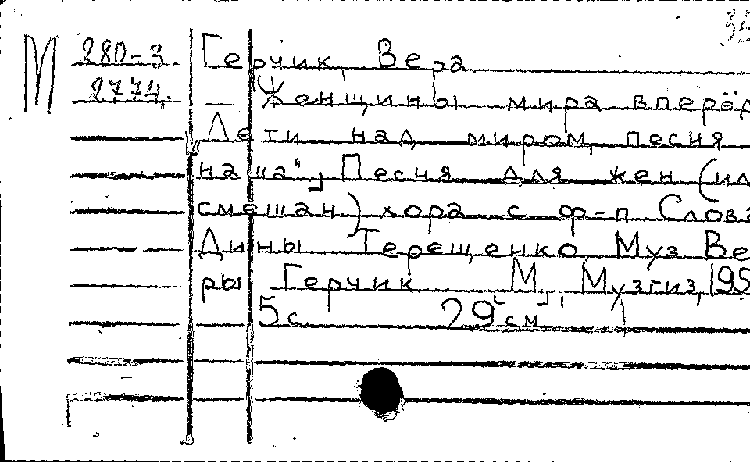 М 280-3 Герчик, Вера
2774. Женщины мира вперёд
Лети над миром, песня
наша", Песня для жен (ил
смешан) хора с ф-п Слова
Дины Терещенко Муз Ве
ры Герчик М, Музгиз, 195
5с 29 см